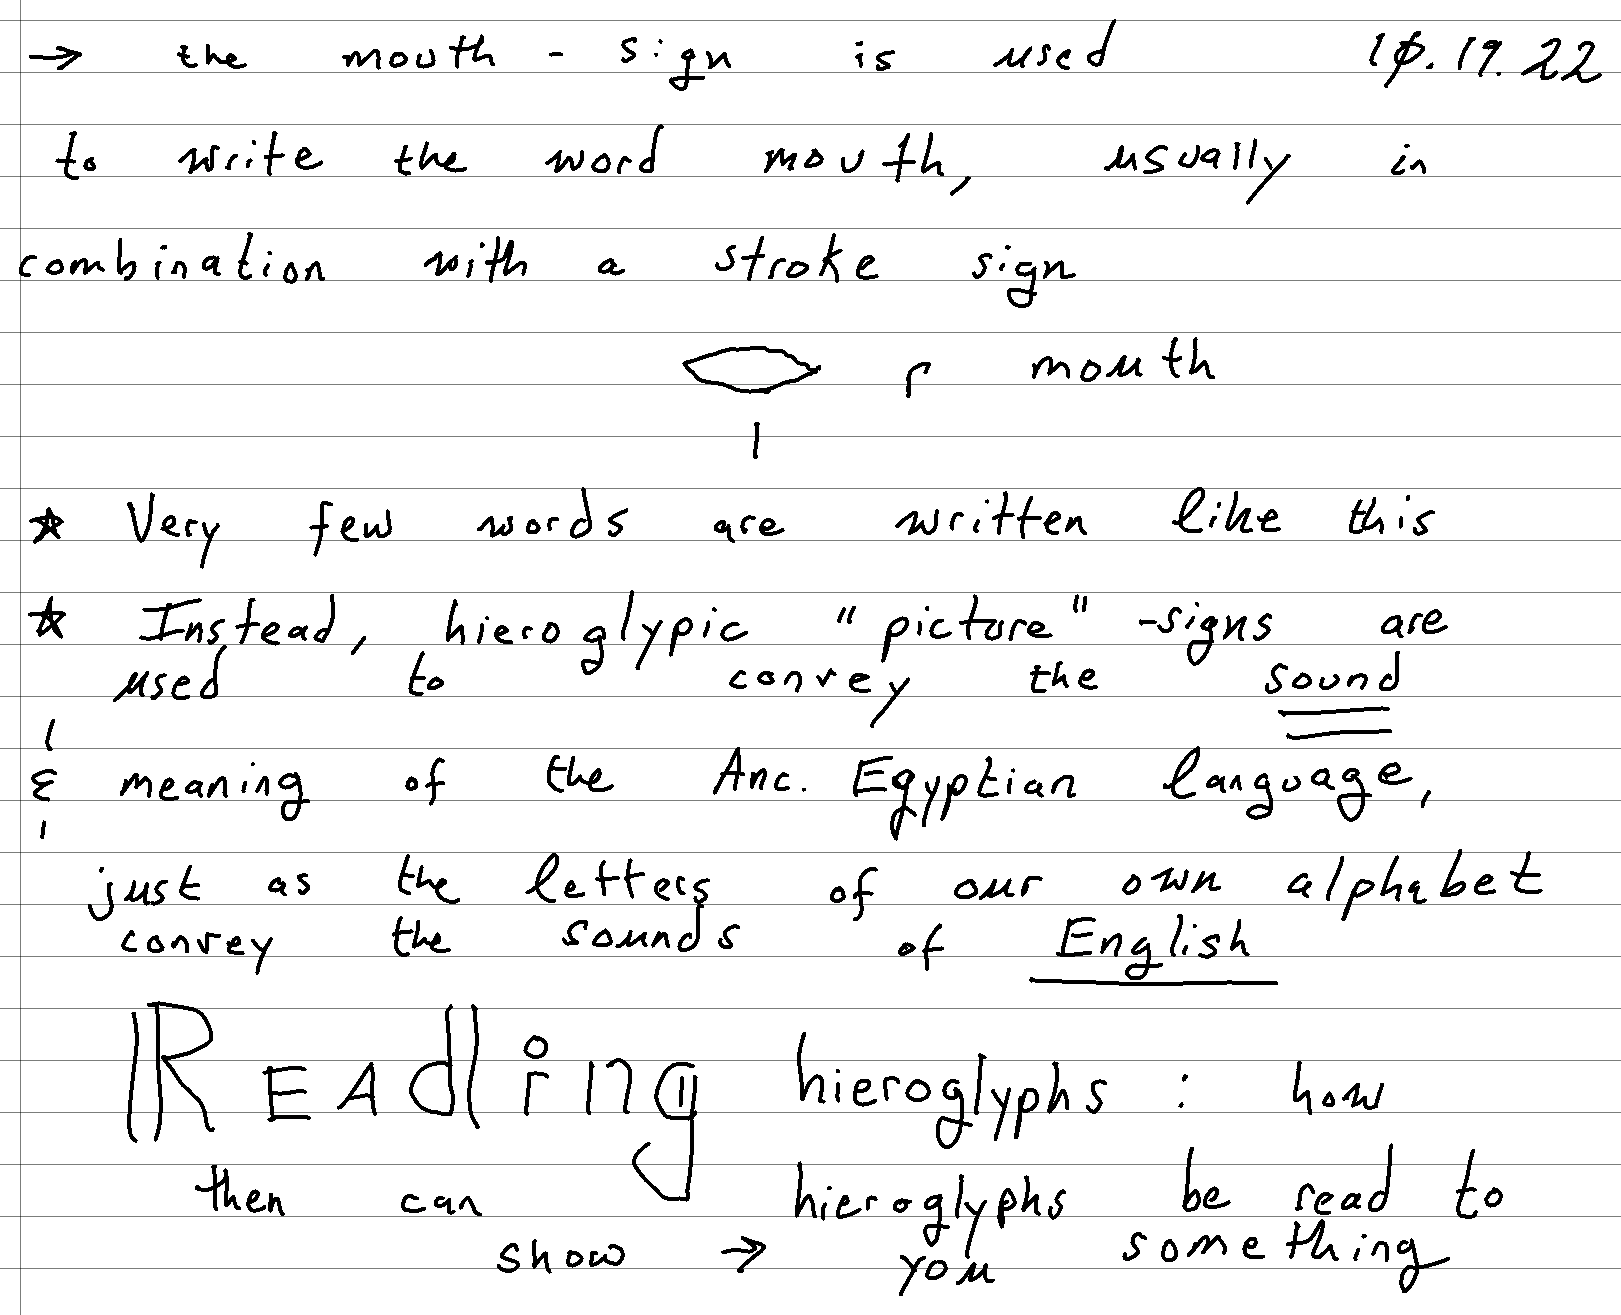 → the mouth - sign is used 10.19.22
to write the word mouth, usually in
combination with a stroke sign
r mouth
☆ Very few words are written like this
☆ Instead, hieroglypic "picture" -signs are
used to convey the sound
& meaning of the Anc. Egyptian language,
just as the letters of our own alphabet
convey the sounds of English
Reading hieroglyphs : how
then can hieroglyphs be read to
show → you something